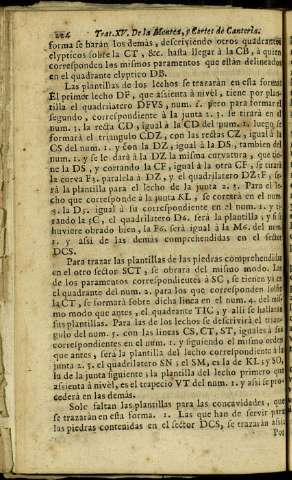 224 Trat.XV. De la Montea, y Cortes de Canteria.
forma se harán los demàs, descriviendo otros quadrantes
elypticos sobre la CT, &c. hasta llegar à la CB, à quien
corresponden los mismos paramentos que estàn delineados
en el quadrante elyptico DB.
Las plantillas de los lechos se trazaràn en esta forma.
El primer lecho DF, que assienta à nivel, tiene por plan-
tilla el quadrilatero DFVS, num. 1. pero para formar el
segundo, correspondiente à la junta 1. 3. se tirarà en el
num. 3. la recta CD, igual à la CD del num. 2. luego se
formarà el triangulo CDZ, con las rectas CZ, igual à la
CS del num. 1. y con la DZ, igual à la DS, tambien del
num. 1. y se le darà à la DZ la misma curvatura, que tie-
ne la DS, y cortando la CF, igual à la otra CF, se tirarà
la corva F3. paralela à DZ, y el quadrilatero DZ3F, se-
rà la plantilla para el lecho de la junta 2. 3. Para el le-
cho que corresponde à la junta KL, se cortarà en el num.
3. la D5. igual à su correspondiente en el num. 2. y ti-
rando la 5C, el quadrilatero D6. serà la plantilla; y si
huviere obrado bien, la F6. serà igual à la M6. del num.
1. y assi de las demàs comprehendidas en el sector
DCS.
Para trazar las plantillas de las piedras comprehendidas
en el otro sector SCT, se obrarà del mismo modo. Las
de los paramentos correspondientes à SC, se tienen ya en
el quadrante del num. 2. para los que corresponden sobre
la CT, se formarà sobre dicha linea en el num. 4. del mis-
mo modo que antes, el quadrante TIC, y alli se hallaràn
sus plantillas. Para las de los lechos se descrivirà el trian-
gulo del num. 5. con las lineas CS, CT, ST, iguales à sus
correspondientes en el num. 1. y siguiendo el mismo orden
que antes, serà la plantilla del lecho correspondiente à la
junta 2. 3. el quadrilatero SN; el SM, es la de KL; y SO,
la de la junta siguiente; la plantilla del lecho primero que
assienta à nivel, es el trapecio VT del num. 1. y assi se pro-
cederà en las demàs.
Solo faltan las plantillas para las concavidades, que
se trazaràn en esta forma. 1. Las que han de servir para
las piedras contenidas en el sector DCS, se trazaràn assi:
Por